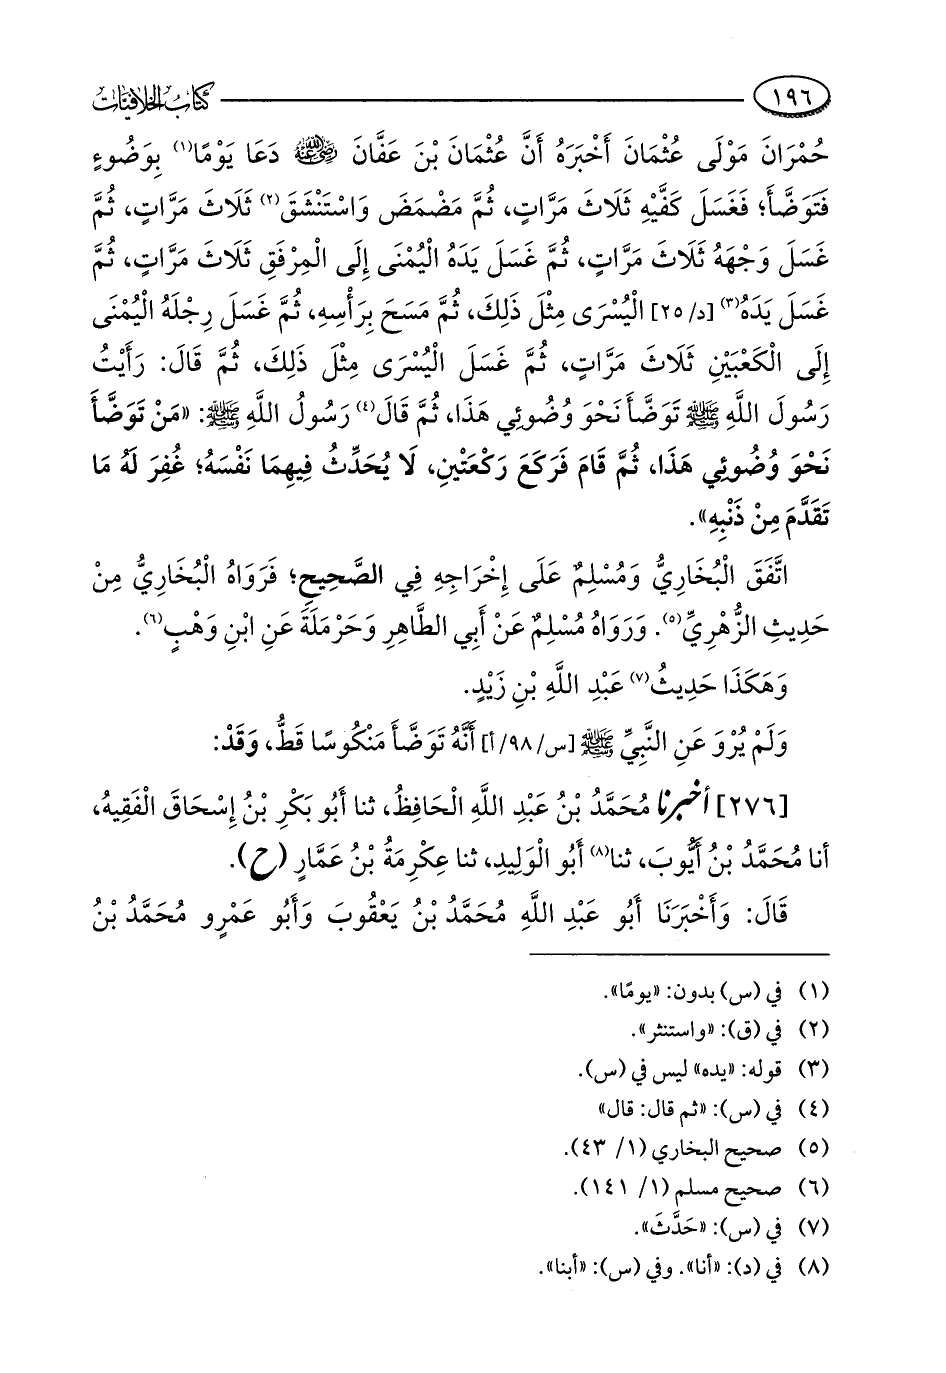 ١٩٦ كتاب الخلافيات
حُمْرَانَ مَوْلَى عُثْمَانَ أَخْبَرَهُ أَنَّ عُثْمَانَ بْنَ عَفَّانَ رضي الله عنه دَعَا يَوْمًا(١) بِوَضُوءٍ
فَتَوَضَّأَ؛ فَغَسَلَ كَفَّيْهِ ثَلَاثَ مَرَّاتٍ، ثُمَّ مَضْمَضَ وَاسْتَنْشَقَ(٢) ثَلَاثَ مَرَّاتٍ، ثُمَّ
غَسَلَ وَجْهَهُ ثَلَاثَ مَرَّاتٍ، ثُمَّ غَسَلَ يَدَهُ الْيُمْنَى إِلَى الْمِرْفَقِ ثَلَاثَ مَرَّاتٍ، ثُمَّ
غَسَلَ يَدَهُ(٣) [د/٢٥] الْيُسْرَى مِثْلَ ذَلِكَ، ثُمَّ مَسَحَ بِرَأْسِهِ، ثُمَّ غَسَلَ رِجْلَهُ الْيُمْنَى
إِلَى الْكَعْبَيْنِ ثَلَاثَ مَرَّاتٍ، ثُمَّ غَسَلَ الْيُسْرَى مِثْلَ ذَلِكَ، ثُمَّ قَالَ: رَأَيْتُ
رَسُولَ اللَّهِ ﷺ تَوَضَّأَ نَحْوَ وُضُوئِي هَذَا، ثُمَّ قَالَ(٤) رَسُولُ اللَّهِ ﷺ: «مَنْ تَوَضَّأَ
نَحْوَ وُضُوئِي هَذَا، ثُمَّ قَامَ فَرَكَعَ رَكْعَتَيْنِ، لَا يُحَدِّثُ فِيهِمَا نَفْسَهُ؛ غُفِرَ لَهُ مَا
تَقَدَّمَ مِنْ ذَنْبِهِ».
اتَّفَقَ الْبُخَارِيُّ وَمُسْلِمٌ عَلَى إِخْرَاجِهِ فِي الصَّحِيحِ؛ فَرَوَاهُ الْبُخَارِيُّ مِنْ
حَدِيثِ الزُّهْرِيِّ(٥). وَرَوَاهُ مُسْلِمٌ عَنْ أَبِي الطَّاهِرِ وَحَرْمَلَةَ عَنِ ابْنِ وَهْبٍ(٦).
وَهَكَذَا حَدِيثُ(٧) عَبْدِ اللَّهِ بْنِ زَيْدٍ.
وَلَمْ يُرْوَ عَنِ النَّبِيِّ ﷺ [س/٩٨/أ] أَنَّهُ تَوَضَّأَ مَنْكُوسًا قَطُّ، وَقَدْ:
[٢٧٦] أخبرنا مُحَمَّدُ بْنُ عَبْدِ اللَّهِ الْحَافِظُ، ثنا أَبُو بَكْرِ بْنُ إِسْحَاقَ الْفَقِيهُ،
أنا مُحَمَّدُ بْنُ أَيُّوبَ، ثنا(٨) أَبُو الْوَلِيدِ، ثنا عِكْرِمَةُ بْنُ عَمَّارٍ (ح).
قَالَ: وَأَخْبَرَنَا أَبُو عَبْدِ اللَّهِ مُحَمَّدُ بْنُ يَعْقُوبَ وَأَبُو عَمْرٍو مُحَمَّدُ بْنُ
(١) في (س) بدون: «يومًا».
(٢) في (ق): «واستنثر».
(٣) قوله: «يده» ليس في (س).
(٤) في (س): «ثم قال: قال»
(٥) صحيح البخاري (١/ ٤٣).
(٦) صحيح مسلم (١/ ١٤١).
(٧) في (س): «حَدَّثَ».
(٨) في (د): «أنا». وفي (س): «أبنا».